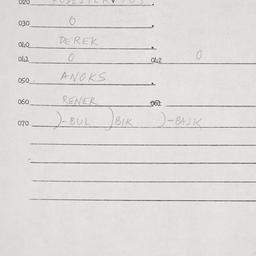 020
030 0
040 DEREK
041 0 042 0
050 ANOKS
060 RENER 061
070 )-BUL )BIK )-BAJK